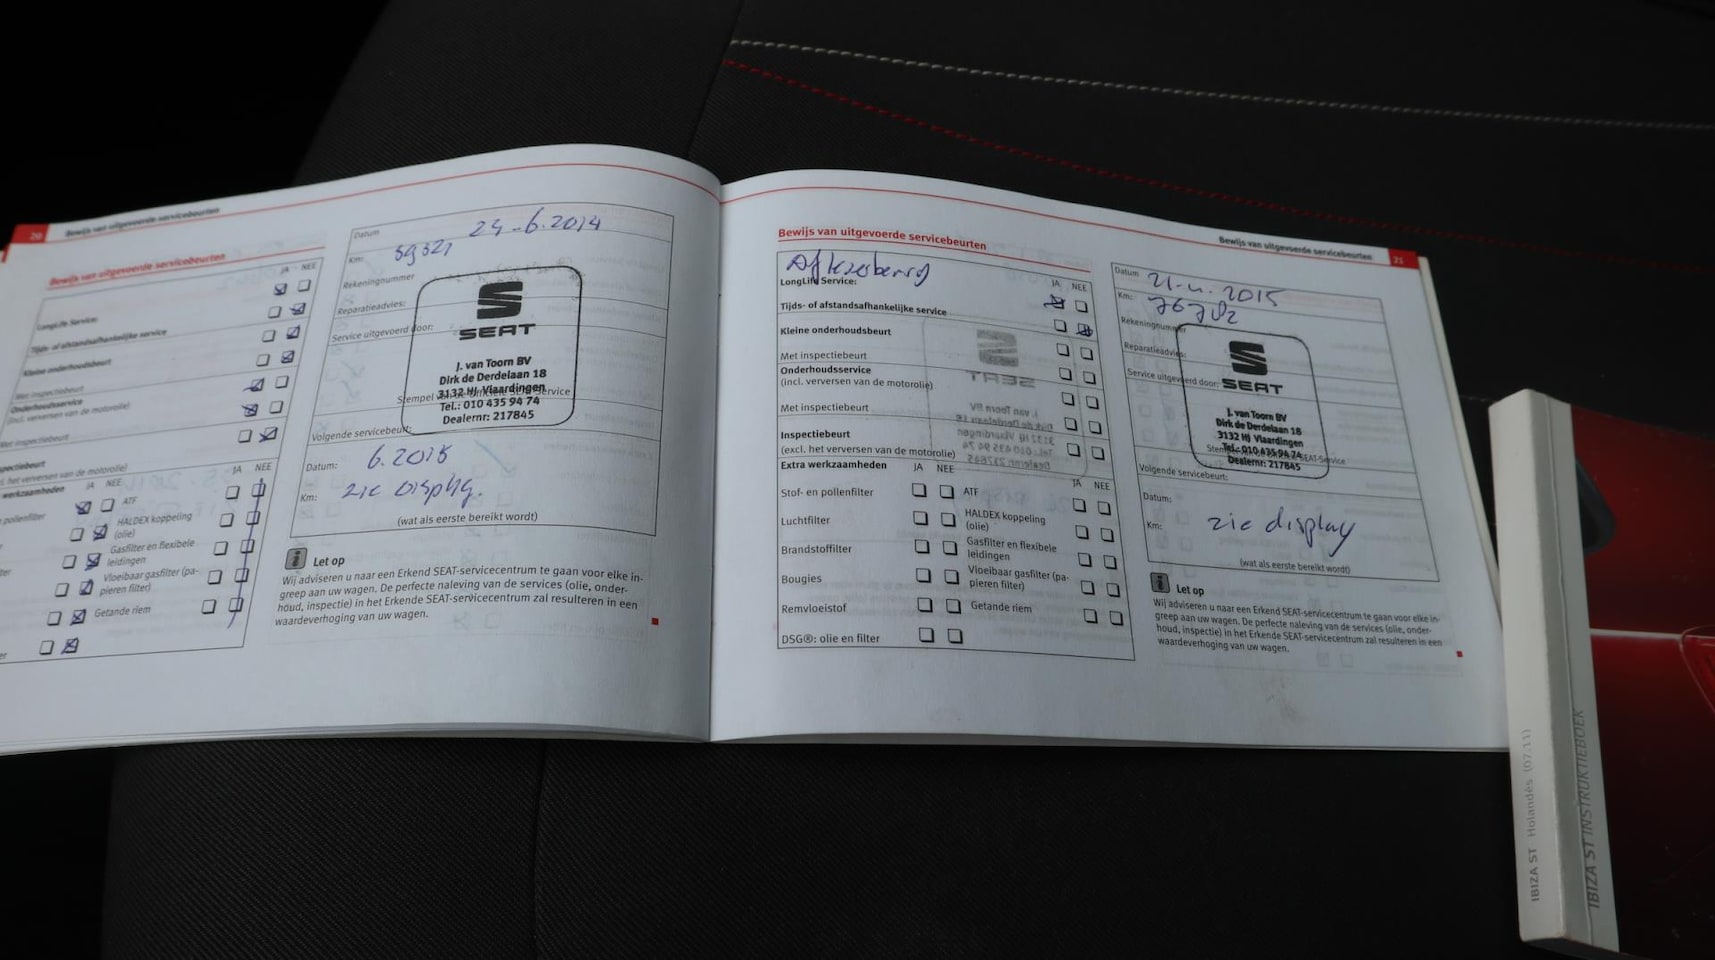 20 Bewijs van uitgevoerde servicebeurten
Bewijs van uitgevoerde servicebeurten
JA NEE
LongLife Service:
Tijds- of afstandsafhankelijke service
Kleine onderhoudsbeurt
Met inspectiebeurt
Onderhoudsservice
(incl. verversen van de motorolie)
Met inspectiebeurt
verversen van de motorolie)
werkzaamheden JA NEE JA NEE
pollenfilter ATF
HALDEX koppeling
(olie)
Gasfilter en flexibele
leidingen
Vloeibaar gasfilter (pa-
pieren filter)
Getande riem
Datum 24-6.2014
Km: 59321
Rekeningnummer
Reparatieadvies:
Service uitgevoerd door:
SEAT
J. van Toorn BV
Dirk de Derdelaan 18
3132 HJ Vlaardingen
Tel.: 010 435 94 74
Dealernr: 217845
Volgende servicebeurt:
Datum: 6.2015
Km: zie display.
(wat als eerste bereikt wordt)
Let op
Wij adviseren u naar een Erkend SEAT-servicecentrum te gaan voor elke in-
greep aan uw wagen. De perfecte naleving van de services (olie, onder-
houd, inspectie) in het Erkende SEAT-servicecentrum zal resulteren in een
waardeverhoging van uw wagen.
Bewijs van uitgevoerde servicebeurten 21
Bewijs van uitgevoerde servicebeurten
LongLife Service: JA NEE
Tijds- of afstandsafhankelijke service
Kleine onderhoudsbeurt
Met inspectiebeurt
Onderhoudsservice
(incl. verversen van de motorolie)
Met inspectiebeurt
Inspectiebeurt
(excl. het verversen van de motorolie)
Extra werkzaamheden JA NEE JA NEE
Stof- en pollenfilter ATF
Luchtfilter HALDEX koppeling
(olie)
Brandstoffilter Gasfilter en flexibele
leidingen
Bougies Vloeibaar gasfilter (pa-
pieren filter)
Remvloeistof Getande riem
DSG®: olie en filter
Datum
2015
Km:
Rekeningnummer
Reparatieadvies:
Service uitgevoerd door:
SEAT
J. van Toorn BV
Dirk de Derdelaan 18
3132 HJ Vlaardingen
Tel.: 010 435 94 74
Dealernr: 217845
Volgende servicebeurt:
Datum:
Km: zie display
(wat als eerste bereikt wordt)
Let op
Wij adviseren u naar een Erkend SEAT-servicecentrum te gaan voor elke in-
greep aan uw wagen. De perfecte naleving van de services (olie, onder-
houd, inspectie) in het Erkende SEAT-servicecentrum zal resulteren in een
waardeverhoging van uw wagen.
IBIZA ST Holandés (07.11)
IBIZA ST INSTRUKTIEBOEK